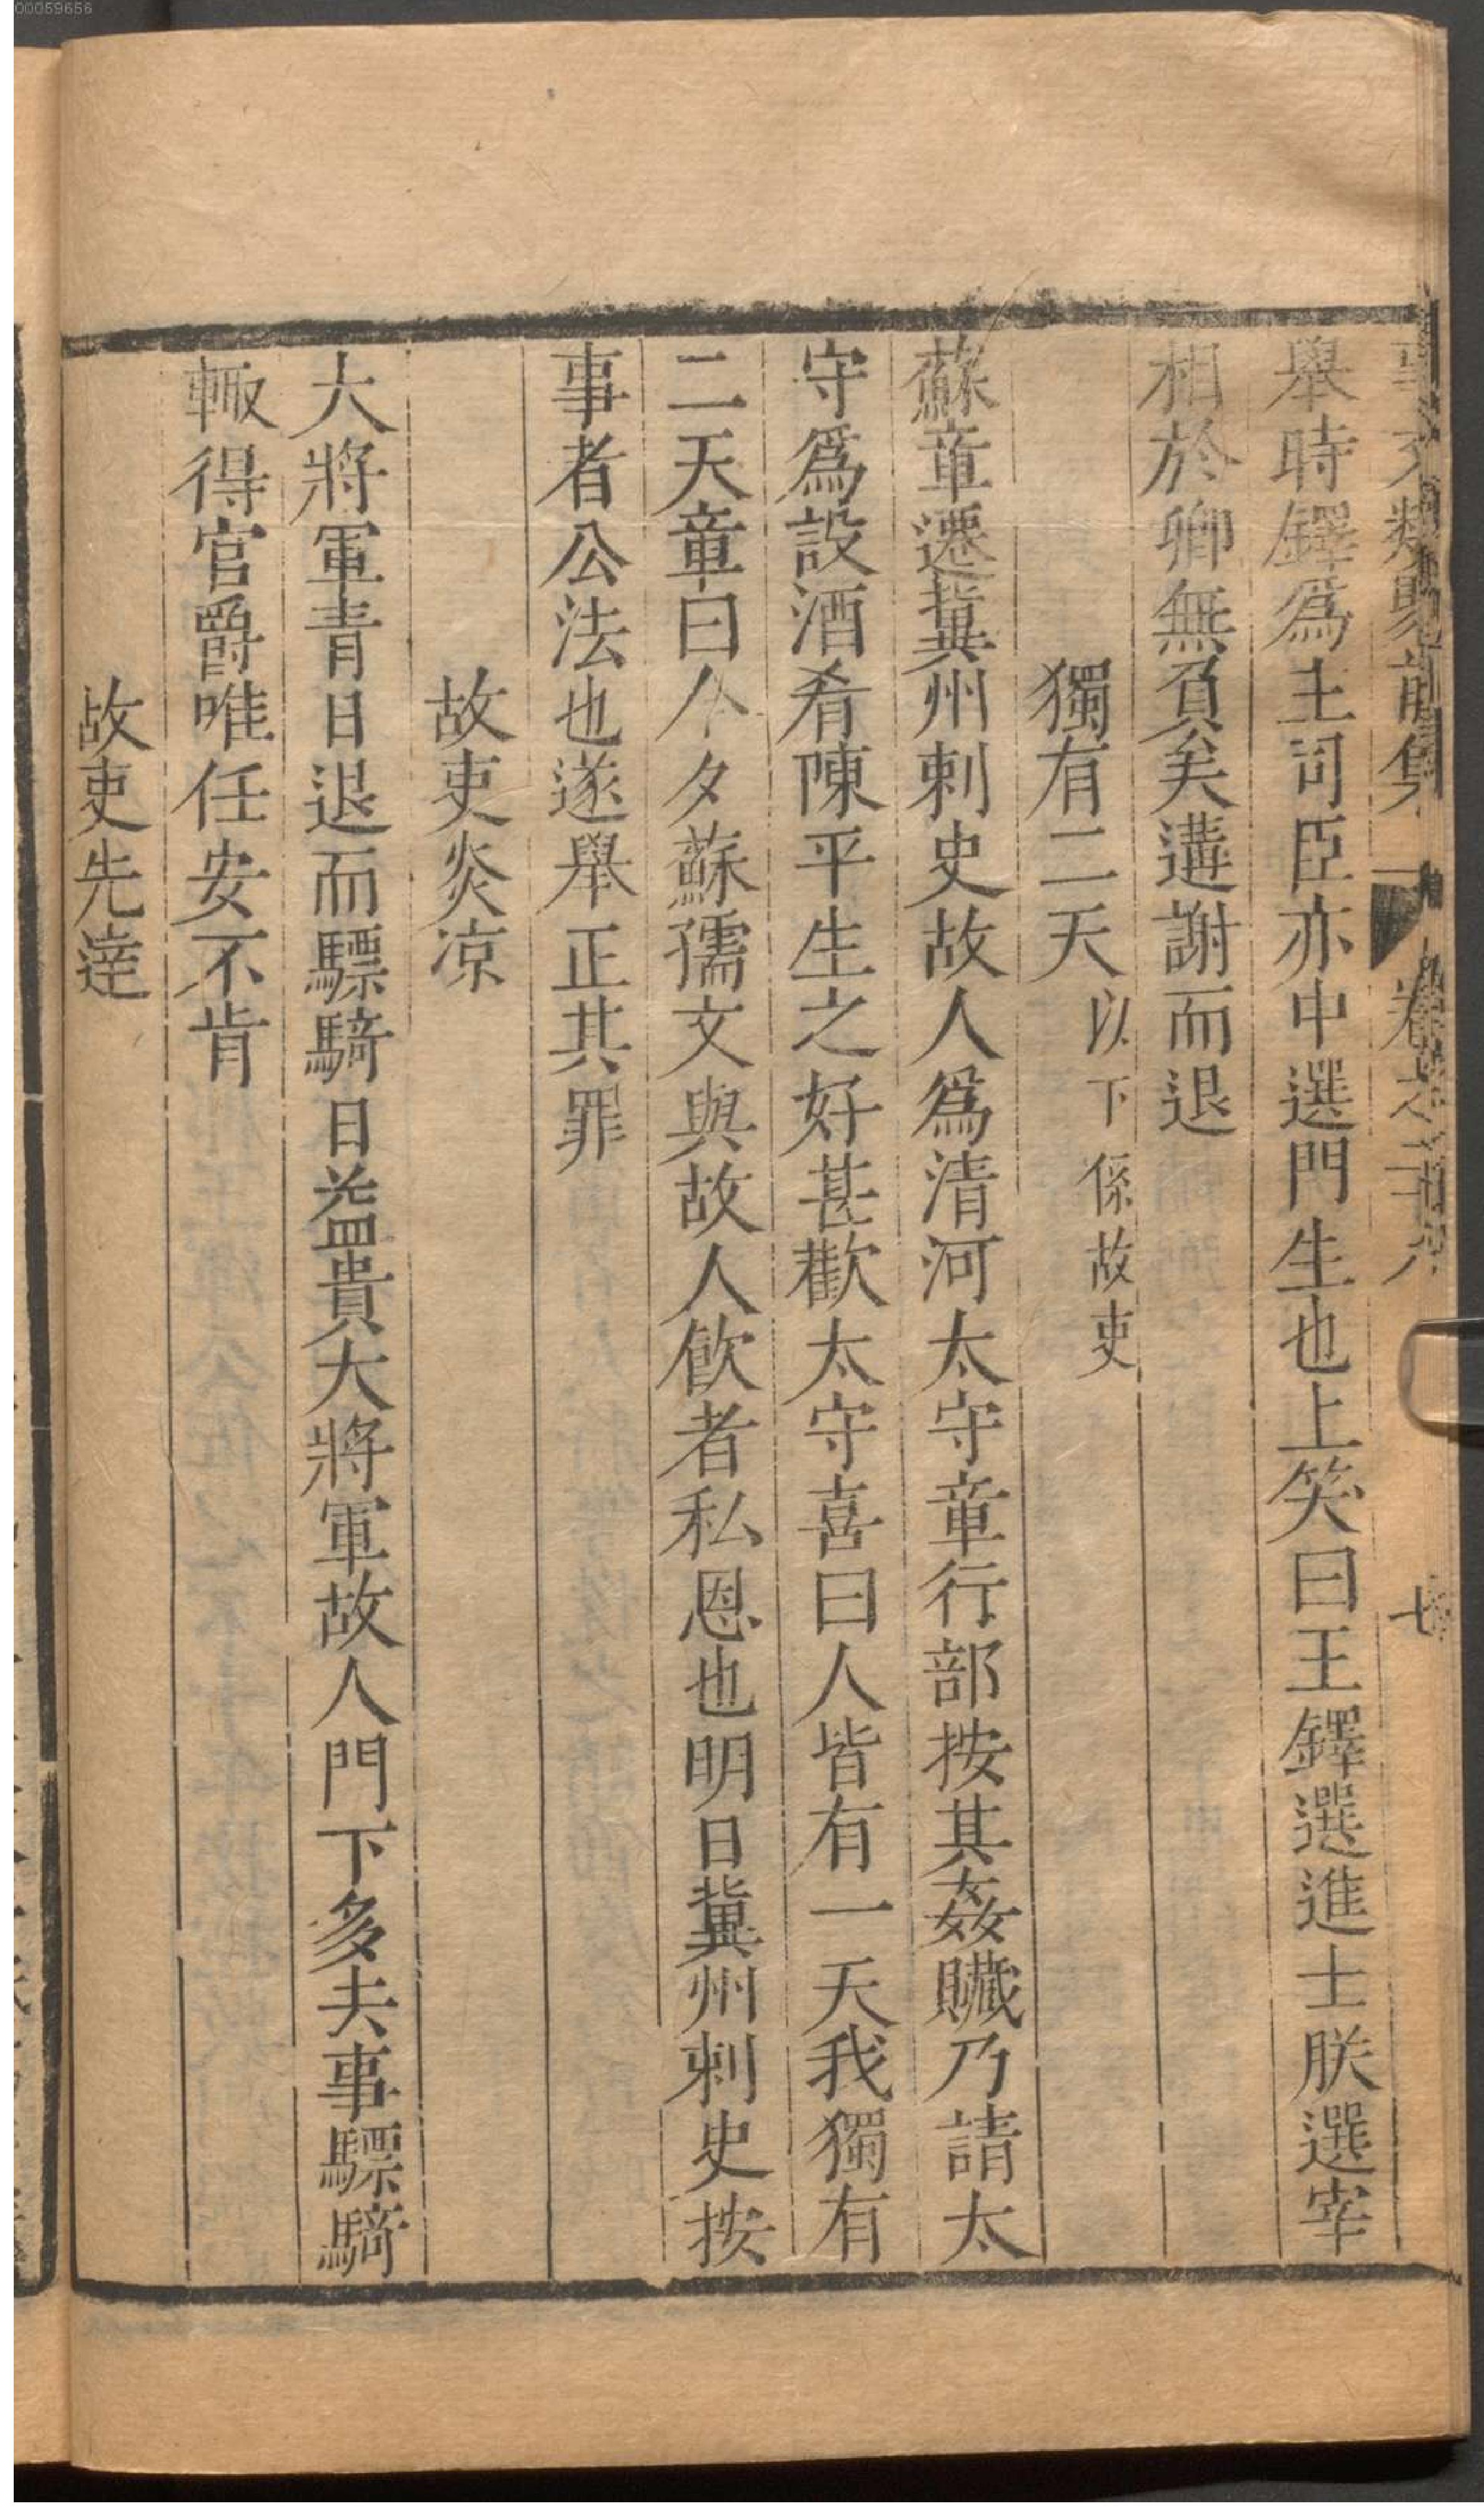 00059656
事文類聚前集 卷之二十九 七
舉時鐸爲主司臣亦中選門生也上笑曰王鐸選進士朕選宰
相於卿無負矣遘謝而退
獨有二天 以下係故吏
蘇章遷冀州刺史故人爲清河太守章行部按其姦贓乃請太
守爲設酒肴陳平生之好甚歡太守喜曰人皆有一天我獨有
二天章曰今夕蘇孺文與故人飲者私恩也明日冀州刺史按
事者公法也遂舉正其罪
故吏炎凉
大將軍青日退而驃騎日益貴大將軍故人門下多去事驃騎
輙得官爵唯任安不肯
故吏先達